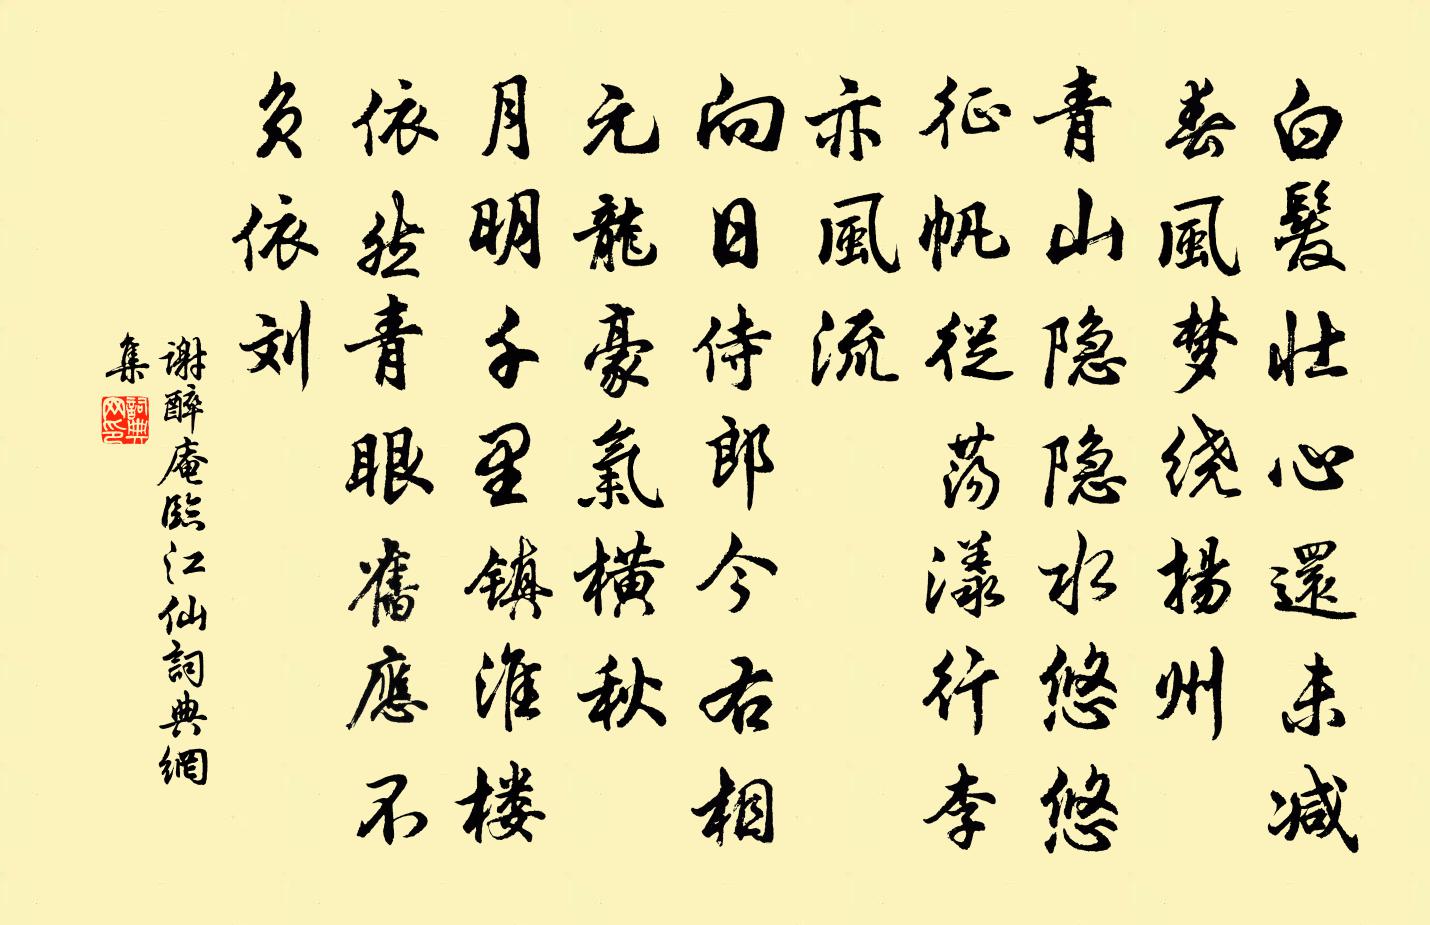 白髮壯心還未减
春風梦绕揚州
青山隐隐水悠悠
征帆從荡漾行李
亦風流
向日侍郎今右相
元龍豪氣橫秋
月明千里镇淮楼
依然青眼舊應不
负依刘
谢醉庵臨江仙詞典網
集
詞典网印